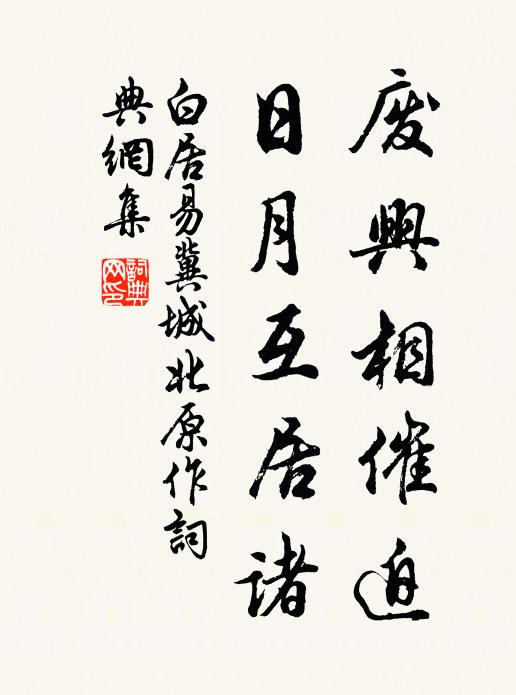 废興相催迫
日月互居诸
白居易冀城北原作詞
典網集
詞典网印